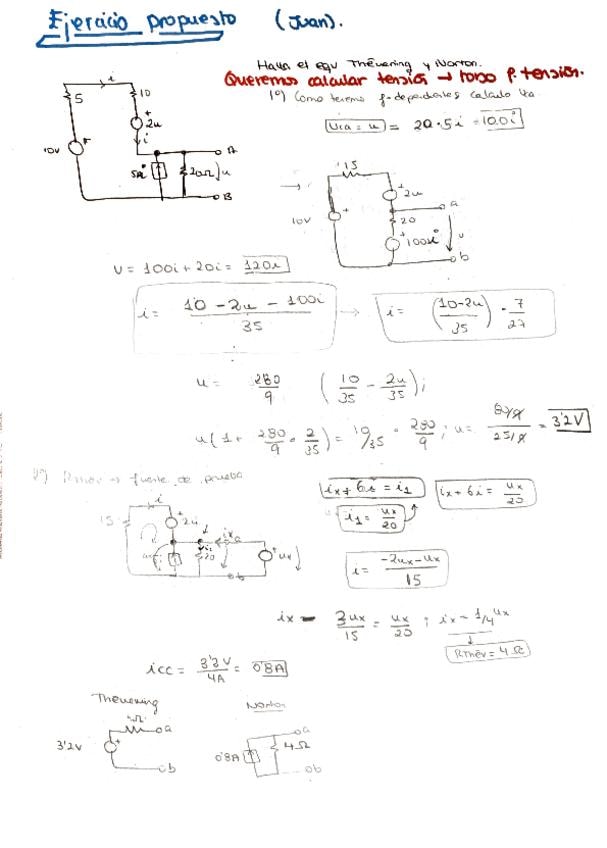 Ejercicio propuesto (Juan).
Halla el equ Thévening y Norton.
Queremos calcular tensión → todo f. tensión.
1º) Como tenemos f. dependientes calculo Vca
Vca = u = 20·5i = 100i
i
5
10
+
2u
i
10V
+
5i
20Ω
u
A
B
→
15
+
2u
a
10V
+
20
+
100i
u
b
U = 100i + 20i = 120i
i = 10 - 2u - 100i / 35 → i = (10-2u / 35) · 7/27
u = 280/9 (10/35 - 2u/35);
u(1 + 280/9 · 2/35) = 10/35 · 280/9; u = = 3'2V
2º) Rthév → fuente de prueba
ix + 6i = i1
ix + 6i = ux/20
i1 = ux/20
i = -2ux - ux / 15
i
15
+
2u
ix
a
i1
20
+
ux
b
ix - 3ux/15 = ux/20 ; ix = 1/4 ux
RThév = 4Ω
icc = 3'2V / 4A = 0'8A
Thevening
Norton
3'2V
+
a
b
0'8A
4Ω
a
b